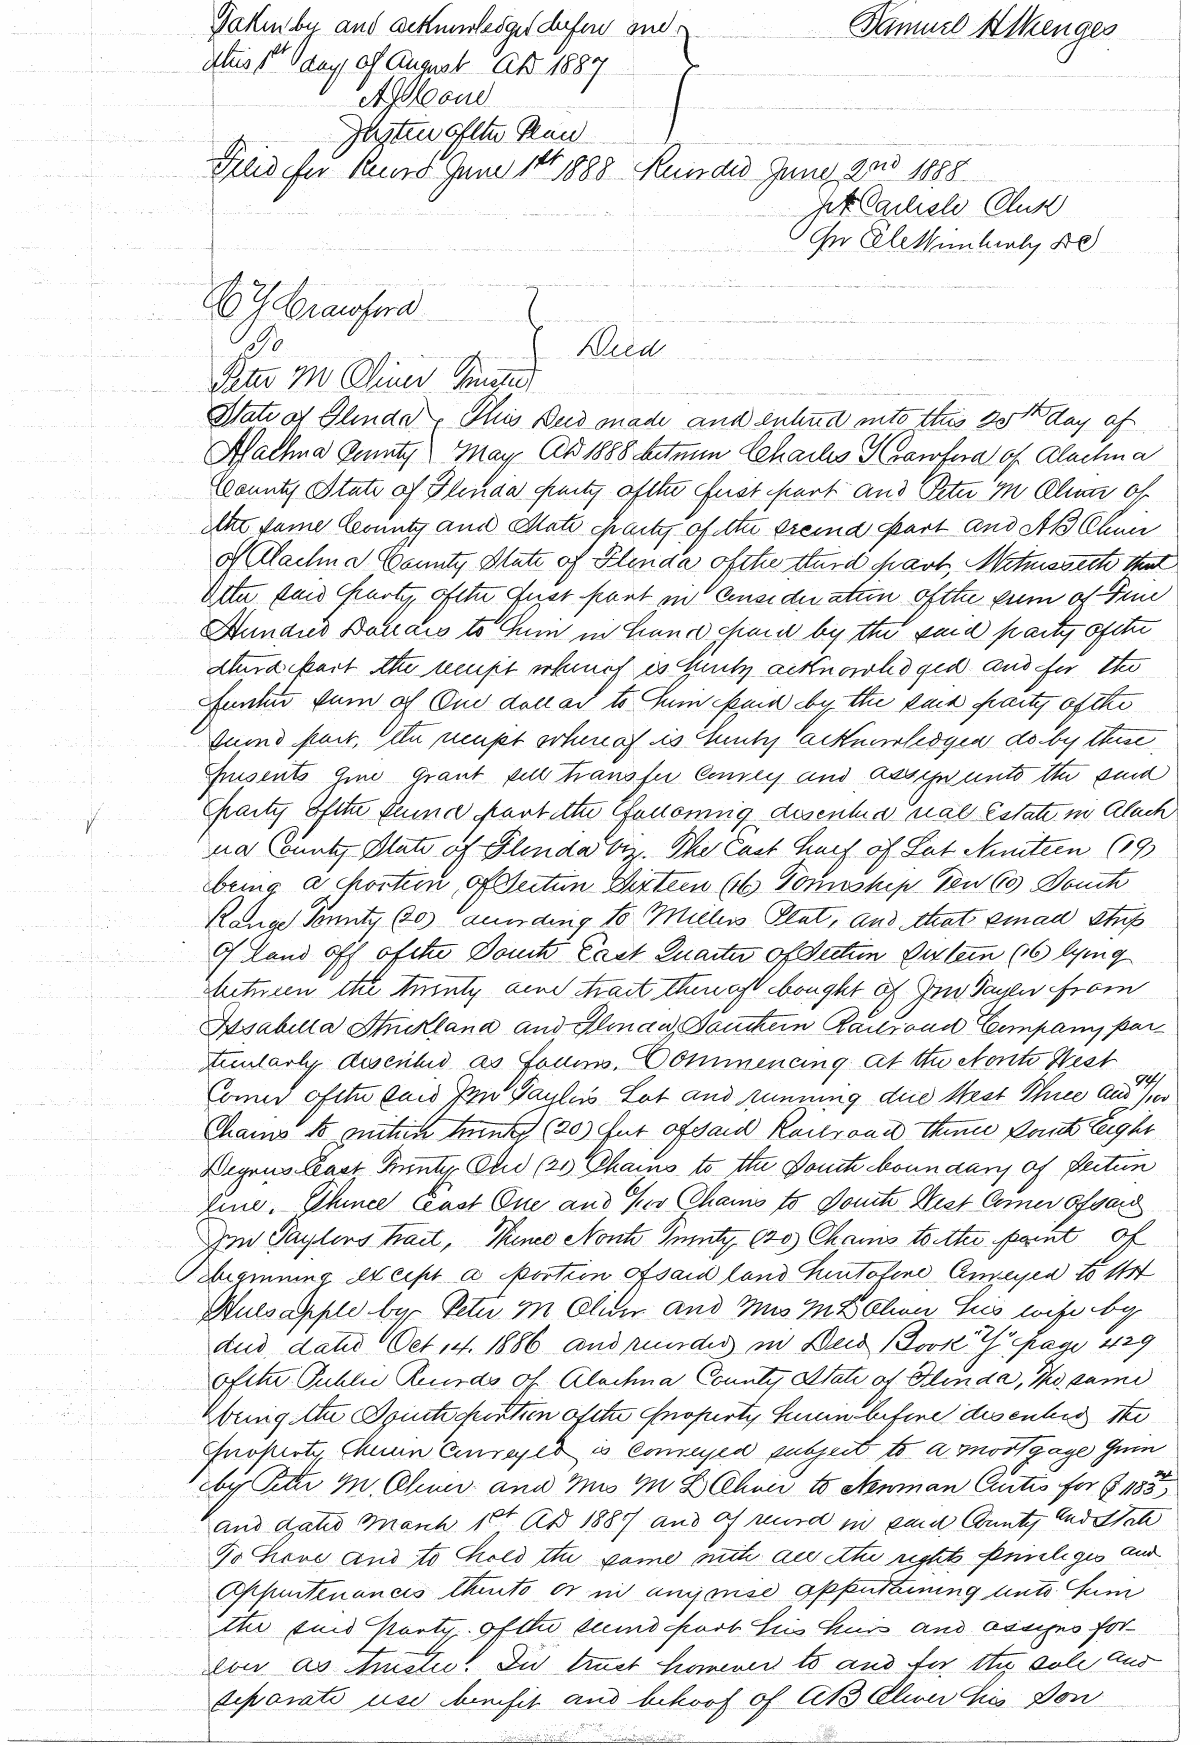 Taken by and acknowledged before me
this 1st day of August AD 1887
Samuel H Wenges
Justice of the Peace
Filed for Record June 1st 1888 Recorded June 2nd 1888
Carlisle Clerk
Per Wimberly DC
C Y Crawford
To
Deed
Peter M Oliver Trustee
State of Florida This Deed made and entered into this 25th day of
Alachua County May AD 1888 between Charles Y Crawford of Alachua
County State of Florida party of the first part and Peter M Oliver of
the same County and State party of the second part and AB Oliver
of Alachua County State of Florida of the third part, Witnesseth that
the said party of the first part in consideration of the sum of Five
Hundred Dollars to him in hand paid by the said party of the
third part the receipt whereof is hereby acknowledged and for the
further sum of One dollar to him paid by the said party of the
second part, the receipt whereof is hereby acknowledged do by these
presents give grant sell transfer convey and assign unto the said
party of the second part the following described real Estate in Alach
ua County State of Florida viz. The East half of Lot Nineteen (19)
being a portion of Section Sixteen (16) Township Ten (10) South
Range Twenty (20) according to Millers Plat, and that small strip
of land off of the South East Quarter of Section Sixteen (16) lying
between the twenty acre tract thereof bought of Jno Taylor from
Issabella Strickland and Florida Southern Railroad Company par-
ticularly described as follows. Commencing at the North West
Corner of the said Jno Taylor's Lot and running due West Three and 94/100
Chains to within twenty (20) feet of said Railroad thence South Eight
Degrees East Twenty One (21) Chains to the South boundary of Section
line. Thence East One and /100 Chains to South West Corner of said
Jno Taylors tract, Thence North Twenty (20) Chains to the point of
beginning except a portion of said land heretofore Conveyed to
Hulsapple by Peter M Oliver and Mrs M L Oliver his wife by
deed dated Oct 14. 1886 and recorded in Deed Book "Y" page 429
of the Public Records of Alachua County State of Florida, The same
being the South portion of the property herein before described the
property herein Conveyed is conveyed subject to a mortgage given
by Peter M. Oliver and Mrs M L Oliver to Newman Curtis for $1183
and dated March 1st AD 1887 and of record in said County and State
To have and to hold the same with all the rights privileges and
appurtenances thereto or in anywise appertaining unto him
the said party of the second part his heirs and assigns for-
ever as trustee. In trust however to and for the sole and
separate use benefit and behoof of AB Oliver his Son